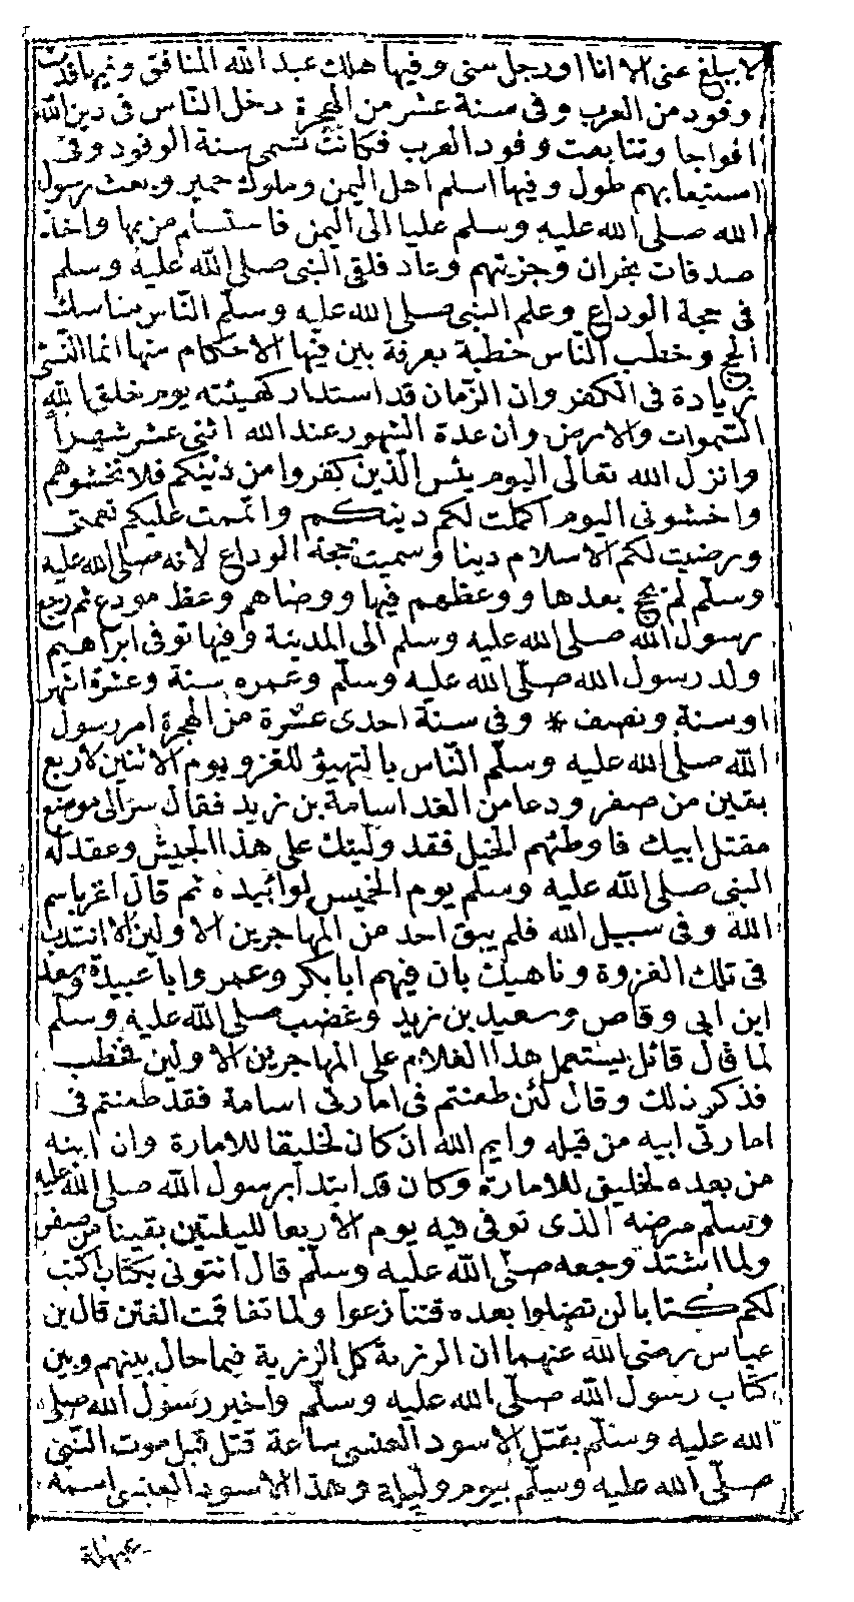 لا يبلغ عنى الا انا او رجل منى وفيها هلك عبد الله المنافق وفيها قدمت
وفود من العرب وفى سنة عشر من الهجرة دخل الناس فى دين الله
افواجا وتتابعت وفود العرب فكانت تسمى سنة الوفود وفى
استيعابهم طول وفيها اسلم اهل اليمن وملوك حمير وبعث رسول
الله صلى الله عليه وسلم عليا الى اليمن فاستسلم من بها واخذ
صدقات نجران وجزيتهم وعاد فلقى النبى صلى الله عليه وسلم
فى حجة الوداع وعلم النبى صلى الله عليه وسلم الناس مناسك
الحج وخطب الناس خطبة بعرفة بين فيها الاحكام منها انما النسئ
زيادة فى الكفر وان الزمان قد استدار كهيئته يوم خلق الله
السموات والارض وان عدة الشهور عند الله اثنى عشر شهراً
وانزل الله تعالى اليوم يئس الذين كفروا من دينكم فلا تخشوهم
واخشونى اليوم اكملت لكم دينكم واتممت عليكم نعمتى
ورضيت لكم الاسلام دينا وسميت حجة الوداع لانه صلى الله عليه
وسلم لم يحج بعدها ووعظهم فيها ووصاهم وعظ مودع ثم رجع
رسول الله صلى الله عليه وسلم الى المدينة وفيها توفى ابراهيم
ولد رسول الله صلى الله عليه وسلم وعمره سنة وعشرة اشهر
او سنة ونصف * وفى سنة احدى عشرة من الهجرة امر رسول
الله صلى الله عليه وسلم الناس بالتهيؤ للغزو يوم الاثنين لاربع
بقين من صفر ودعا من الغد اسامة بن زيد فقال سر الى موضع
مقتل ابيك فاوطئهم الخيل فقد وليتك على هذا الجيش وعقد له
النبى صلى الله عليه وسلم يوم الخميس لوا بيده ثم قال اغز باسم
الله وفى سبيل الله فلم يبق احد من المهاجرين الاولين الا انتدب
فى تلك الغزوة وناهيك بان فيهم ابا بكر وعمر وابا عبيدة وسعد
ابن ابى وقاص وسعيد بن زيد وغضب صلى الله عليه وسلم
لما قال قائل يستعمل هذا الغلام على المهاجرين الاولين فخطب
فذكر ذلك وقال لئن طعنتم فى امارتى اسامة فقد طعنتم فى
امارتى ابيه من قبله وايم الله ان كان لخليقا للامارة وان ابنه
من بعده لخليق للامارة وكان قد ابتدأ برسول الله صلى الله عليه
وسلم مرضه الذى توفى فيه يوم الاربعا لليلتين بقيتا من صفر
ولما اشتد وجعه صلى الله عليه وسلم قال ائتونى بكتاب اكتب
لكم كتابا لن تضلوا بعده فتنازعوا ولما تفاقمت الفتن قال بن
عباس رضى الله عنهما ان الرزية كل الرزية فيما حال بينهم وبين
كتاب رسول الله صلى الله عليه وسلم واخبر رسول الله صلى
الله عليه وسلم بقتل الاسود العنسى ساعة قتل قبل موت النبى
صلى الله عليه وسلم بيوم وليلة وهذا الاسود العنسى اسمه
عبهلة